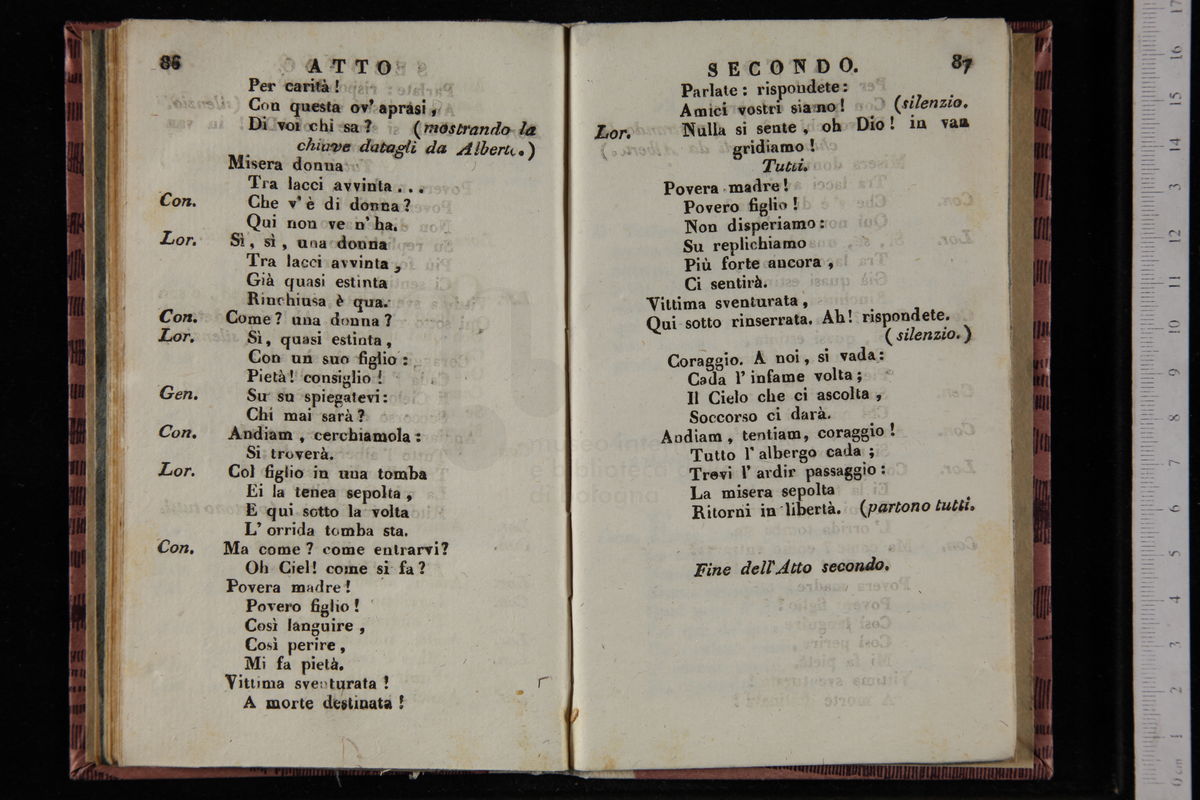 86
ATTO
Per carità!
Con questa ov' aprasi,
Di voi chi sa? (mostrando la
chiave datagli da Alberto.)
Misera donna
Tra lacci avvinta...
Con. Che v'è di donna?
Qui non ve n'ha.
Lor. Sì, sì, una donna
Tra lacci avvinta,
Già quasi estinta
Rinchiusa è qua.
Con. Come? una donna?
Lor. Sì, quasi estinta,
Con un suo figlio:
Pietà! consiglio!
Gen. Su su spiegatevi:
Chi mai sarà?
Con. Andiam, cerchiamola:
Si troverà.
Lor. Col figlio in una tomba
Ei la tenea sepolta,
E qui sotto la volta
L'orrida tomba sta.
Con. Ma come? come entrarvi?
Oh Ciel! come si fa?
Povera madre!
Povero figlio!
Così languire,
Così perire,
Mi fa pietà.
Vittima sventurata!
A morte destinata!
SECONDO.
87
Parlate: rispondete:
Amici vostri siamo! (silenzio.
Lor. Nulla si sente, oh Dio! in van
gridiamo!
Tutti.
Povera madre!
Povero figlio!
Non disperiamo:
Su replichiamo
Più forte ancora,
Ci sentirà.
Vittima sventurata,
Qui sotto rinserrata. Ah! rispondete.
(silenzio.)
Coraggio. A noi, si vada:
Cada l'infame volta;
Il Cielo che ci ascolta,
Soccorso ci darà.
Andiam, tentiam, coraggio!
Tutto l'albergo cada;
Trovi l'ardir passaggio:
La misera sepolta
Ritorni in libertà. (partono tutti.
Fine dell'Atto secondo.
museo inte
e biblioteca
di bologna
0 cm 1 2 3 4 5 6 7 8 9 10 11 12 13 14 15 16 17